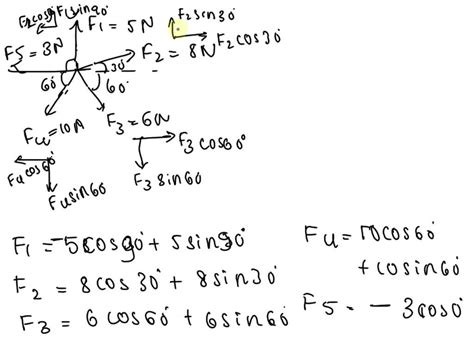 F2cos90° F1sin90°
F1 = 5N
F2sin30°
F5 = 3N
F2 = 8N
F2cos30°
30°
60°
60°
Fu=10N
F3=6N
F3cos60°
Fucos60°
Fusin60
F3sin60
F1 = -5cos90° + 5sin90°
F2 = 8cos30° + 8sin30°
F3 = 6cos60° + 6sin60°
Fu = 10cos60°
+cosin60°
F5 = - 3cos0°